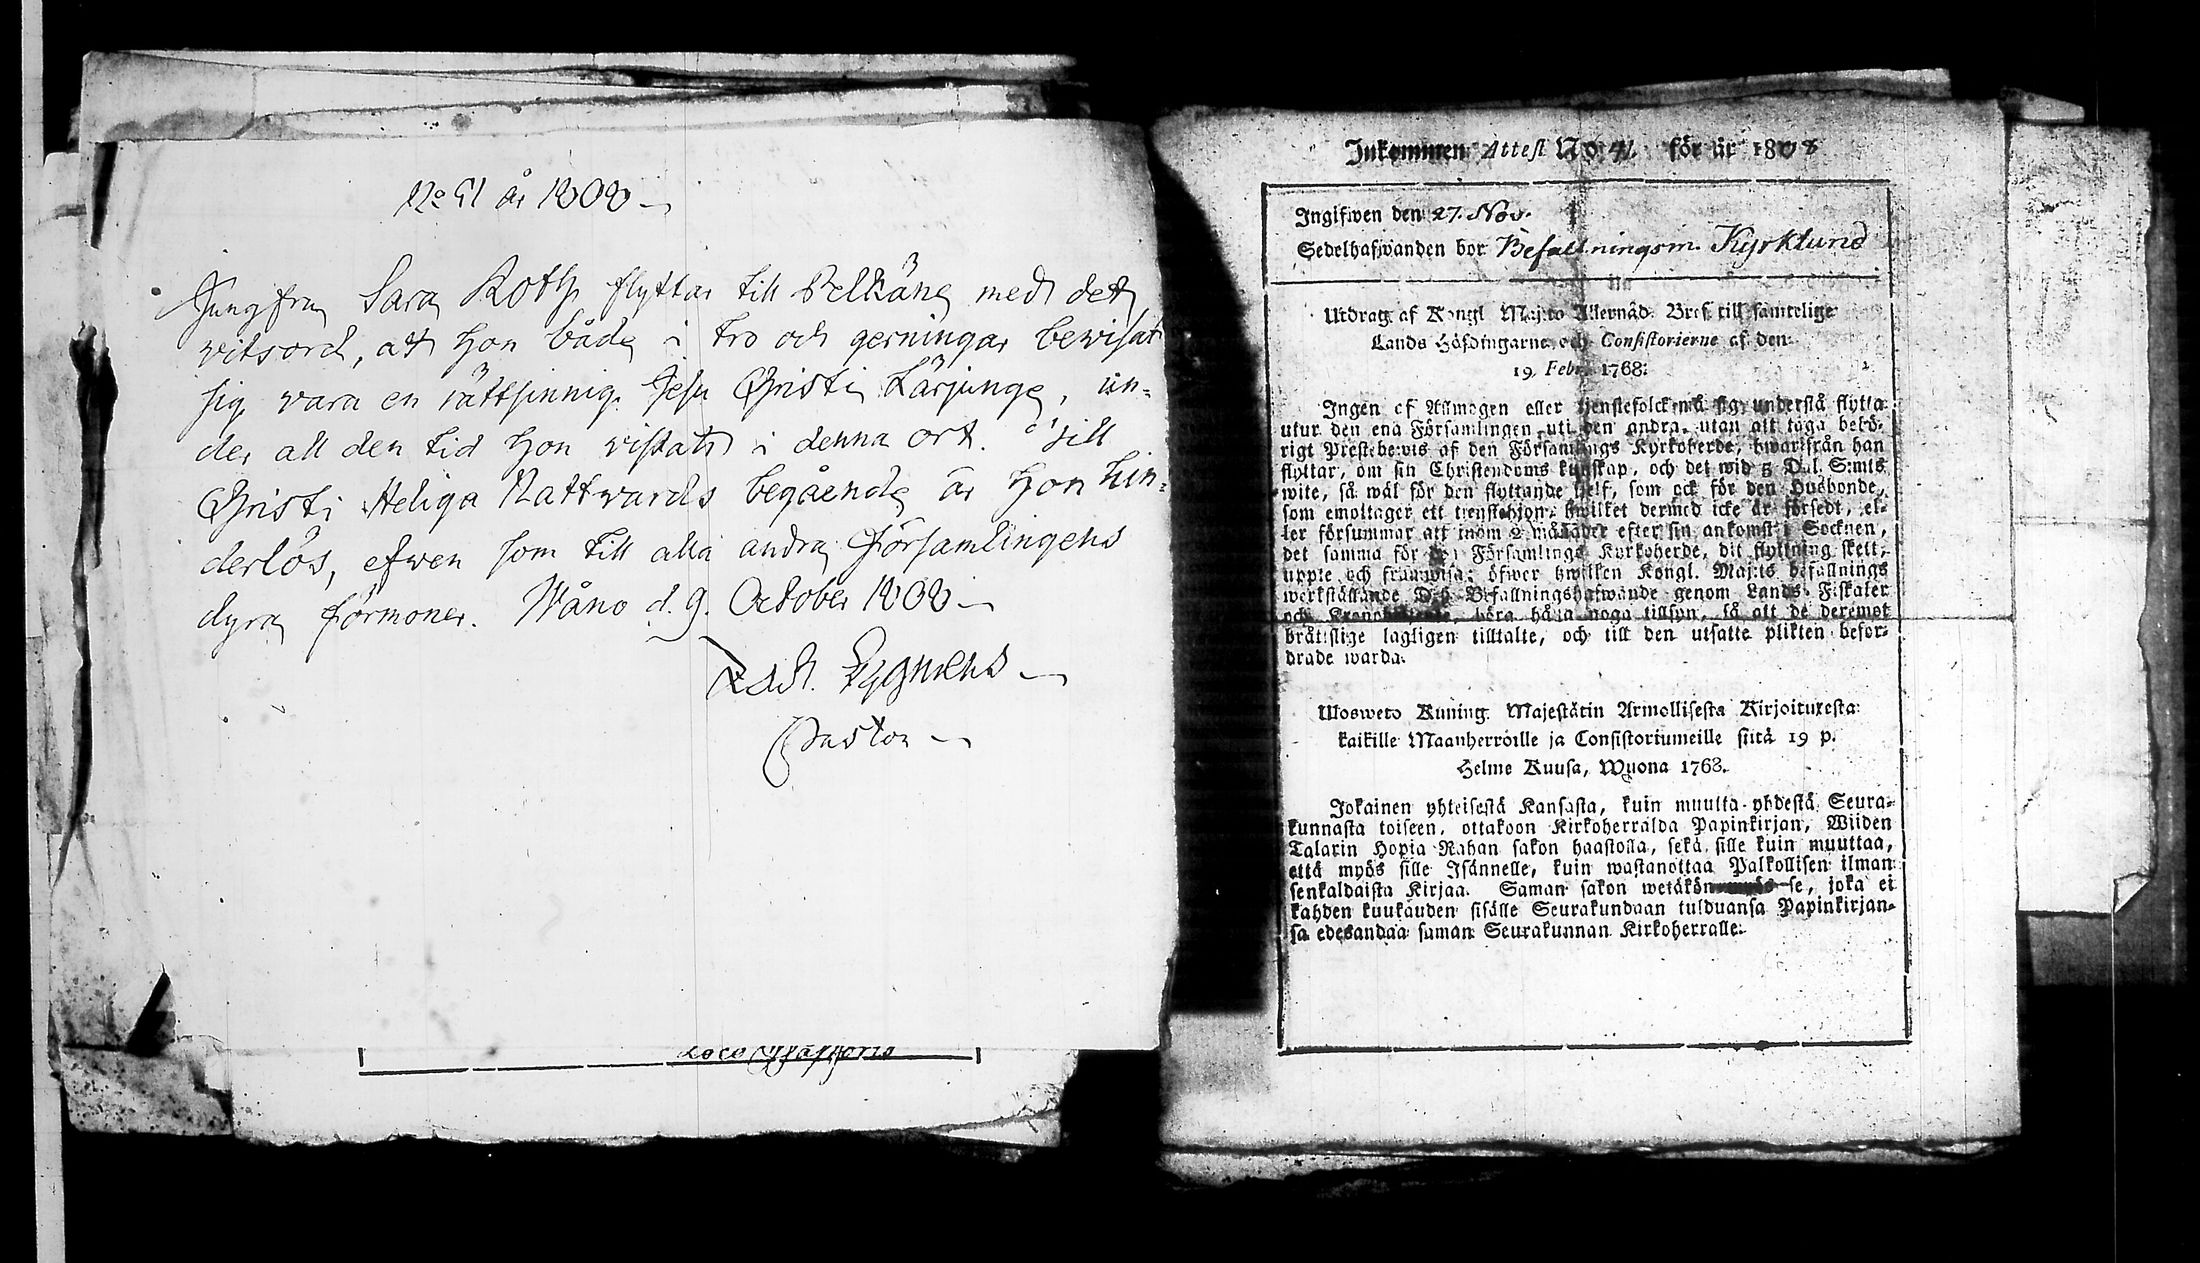 No 51 år 1808
Jungfru Sara Roth flyttar till Pelkäne med det
witsord, at hon både i tro och gerningar bewisat
sig vara en rättsinnig Jesu Christi Lärjunge, un-
der all den tid hon vistats i denna ort. Till
Christi Heliga Nattvards begående är hon hin-
derlös, efwen som till alla andra Församlingens
dyra förmoner. Wåno d. 9. October 1808
Zach. Cygnæus
Pastor
Inkommen Attest No 41. för år 1808
Ingifwen den 27. Nov.
Sedelhafwanden bor Befallningsm. Kyrklund
Utdrag af Kongl. Maj:ts Allernåd. Bref till samtelige
Lands Höfdingarne och Consistorierne af den
19. Febr. 1768.
Ingen af Allmogen eller tjenstefolck må sig understå flytta
utur den ena Församlingen uti den andra, utan att taga behö-
rigt Prestebewis af den Församlings Kyrkoherde, hwarifrån han
flyttar, om sin Christendoms kunskap, och det wid 5 Dal. S:mts
wite, så wäl för den flyttande sielf, som ock för den Husbonde,
som emottager ett tjenstehjon, hwilket dermed icke är försedt, el-
ler försummar att inom 2 månader efter sin ankomst i Socknen,
det samma för den Församlings Kyrkoherde, dit flyttning skett,
uppte och framwisa; öfwer hwilken Kongl. Maj:ts befallnings
werkställande D. h. Befallningshafwande genom Lands-Fiskaler
och böra hålla noga tillsyn, så att de deremot
bråttslige lagligen tilltalte, och till den utsatte plikten befor-
drade warda.
Wosweto Kuning. Majestätin Armollisesta Kirjoituxesta
kaikille Maanherroille ja Consistoriumeille siitä 19 p.
Helme Kuusa, Wuona 1768.
Jokainen yhteisestä Kansasta, kuin muutta yhdestä Seura-
kunnasta toiseen, ottakoon Kirkoherralda Papinkirjan, Wiiden
Talarin Hopia Rahan sakon haastolla, sekä sille kuin muuttaa,
että myös sille Isännelle, kuin wastanottaa Palkollisen ilman
senkaldaista Kirjaa. Saman sakon wetäkön myös se, joka ei
kahden kuukauden sisälle Seurakundaan tulduansa Papinkirjan-
sa edesandaa saman Seurakunnan Kirkoherralle.